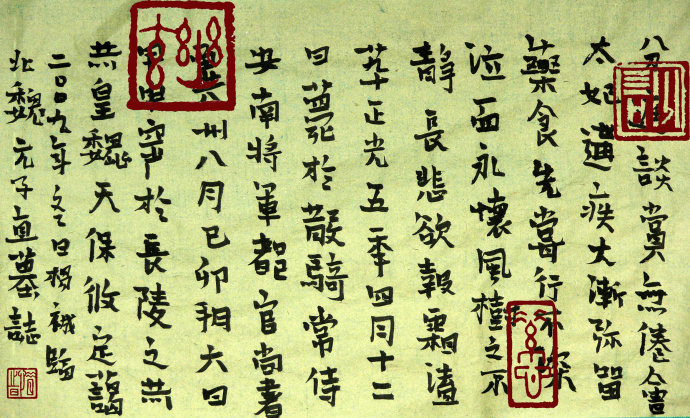 八談賞無倦會
太妃遘疾大漸弥留
藥食先嘗行不
泣血永懷風樹之不
靜長悲欲報霜溘
正光五年四月十二
日薨於散騎常侍
安南將軍都官尚書
六卅八月己卯朔六日
甲申窆於長陵之
皇魏天保攸定藹
二〇〇九年冬日臨
北魏元子直墓誌